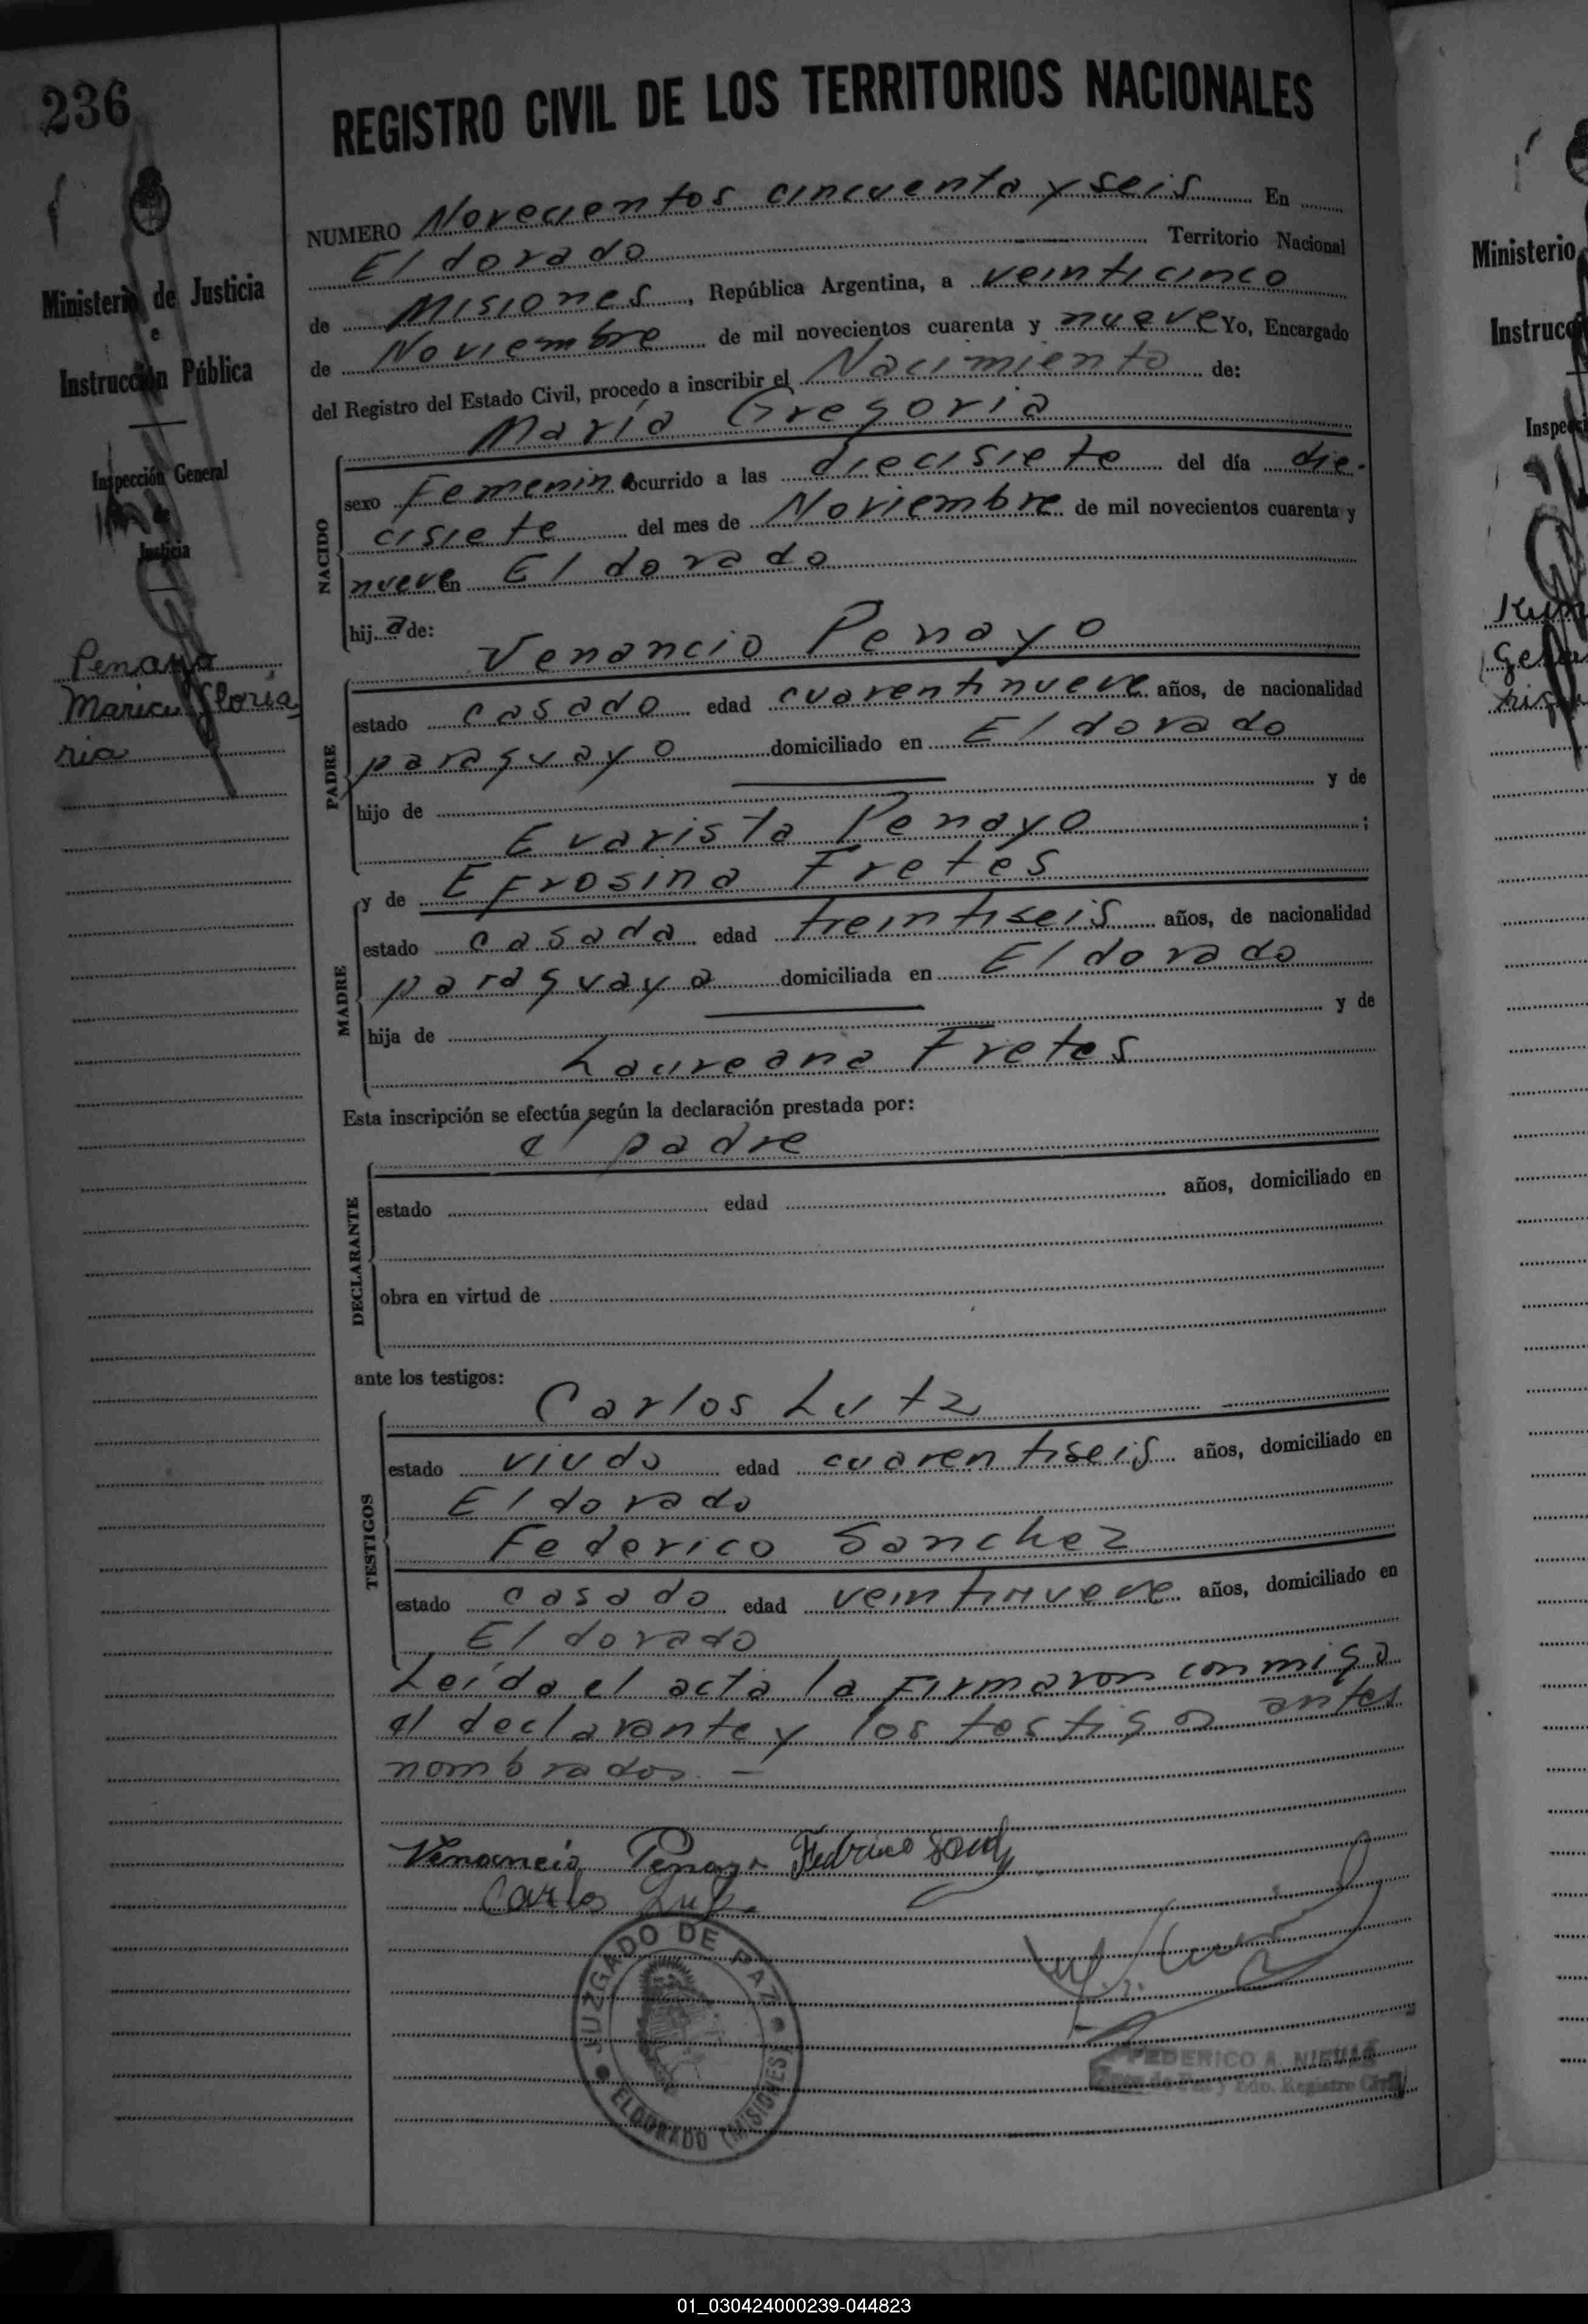 236
REGISTRO CIVIL DE LOS TERRITORIOS NACIONALES
NUMERO Novecientos cincuenta y seis En
El dorado Territorio Nacional
de Misiones, República Argentina, a veinticinco
de Noviembre de mil novecientos cuarenta y nueve Yo, Encargado
del Registro del Estado Civil, procedo a inscribir el Nacimiento de:
María Gregoria
NACIDO
sexo Femenino ocurrido a las diecisiete del día die-
cisiete del mes de Noviembre de mil novecientos cuarenta y
nueve en El dorado
hij a de:
Venancio Penayo
PADRE
estado casado edad cuarentinueve años, de nacionalidad
paraguayo domiciliado en El dorado
hijo de y de
Evarista Penayo ;
y de Efrosina Fretes
MADRE
estado casada edad treintiseis años, de nacionalidad
paraguaya domiciliada en El dorado
hija de y de
Laureana Fretes
Esta inscripción se efectúa según la declaración prestada por:
el padre
DECLARANTE
estado edad años, domiciliado en
obra en virtud de
ante los testigos:
Carlos Lutz
TESTIGOS
estado viudo edad cuarentiseis años, domiciliado en
El dorado
Federico Sanchez
estado casado edad veintinueve años, domiciliado en
El dorado
Leída el acta la firmaron conmigo
el declarante y los testigos antes
nombrados. —
Venancio Penayo Federico
Carlos Lutz
JUZGADO DE PAZ
ELDORADO (MISIONES)
FEDERICO A.
Juez de Paz y Edo. Registro Civil
Ministerio de Justicia
e
Instrucción Pública
Inspección General
Justicia
Penayo
Maria
ria
Ministerio
Instrucc
Inspec
01_030424000239-044823